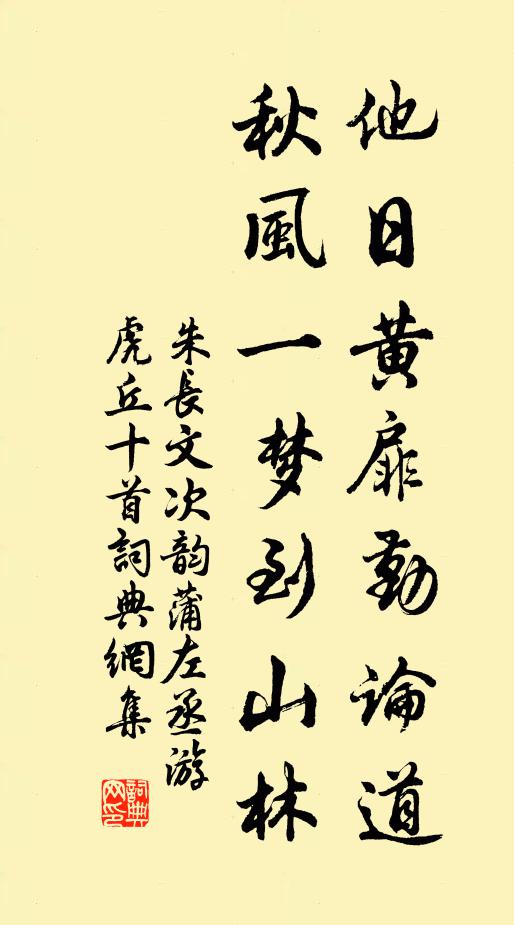 他日黄扉勤論道
秋風一梦到山林
朱長文次韵蒲左丞游
虎丘十首詞典網集
詞典
网印